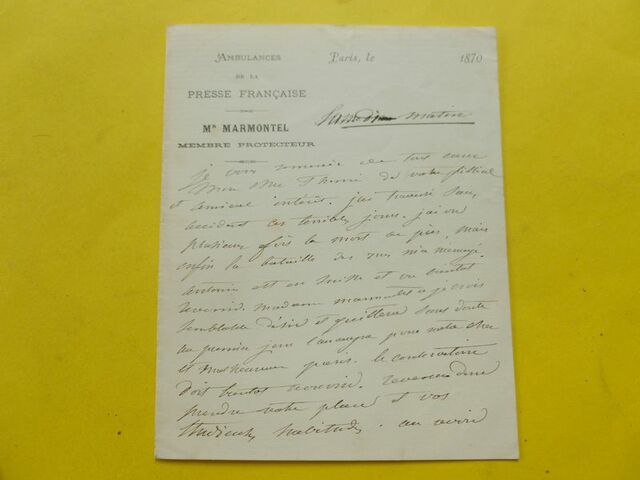 AMBULANCES
DE LA
PRESSE FRANÇAISE
Mr MARMONTEL
MEMBRE PROTECTEUR
Paris, le 1870
Samedi matin
Je vous remercie de tout cœur
Mon de votre filial
et amical intérêt. j'ai traversé sans
accident ces terribles jours. j'ai vu
plusieurs fois la mort de près, mais
enfin la bataille des rues m'a ménagé.
antonin est en et va bientôt
revenir. Madame marmontel a je crois
semblable désir et quittera sans doute
au premier jour pour notre cher
et malheureux paris. le conservatoire
doit bientôt rouvrir. revenez donc
prendre votre place et vos
studieuses habitudes. au revoir